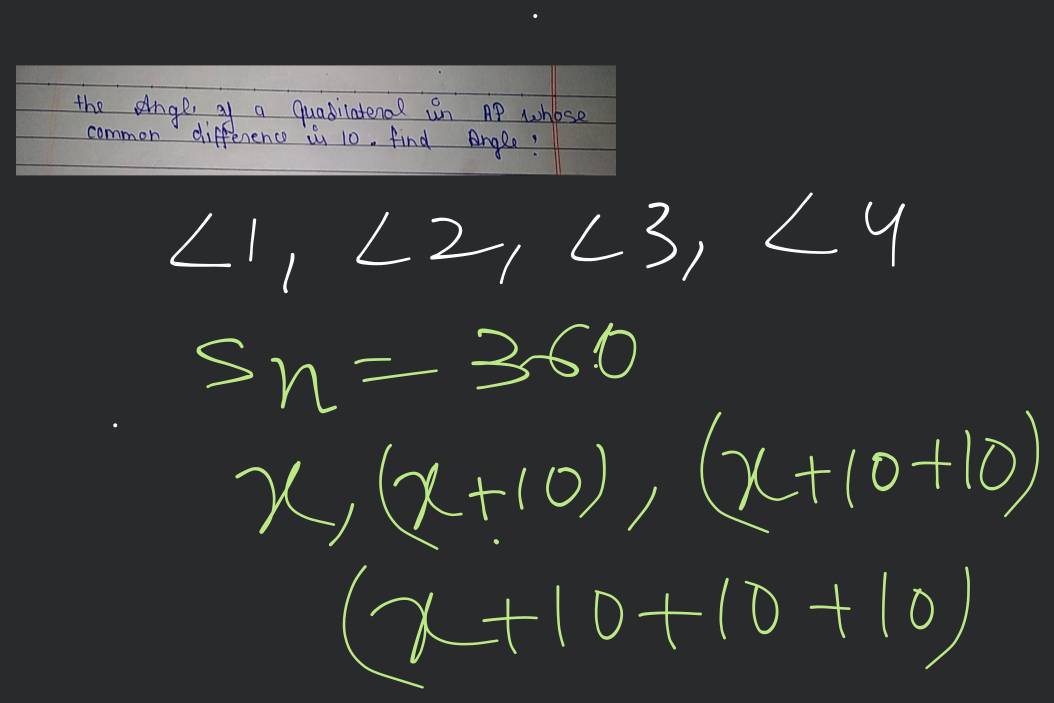 the Angle of a Quadilateral in AP whose
common difference is 10. find Angle?
∠1, ∠2, ∠3, ∠4
Sn = 360
x, (x+10), (x+10+10)
(x+10+10+10)